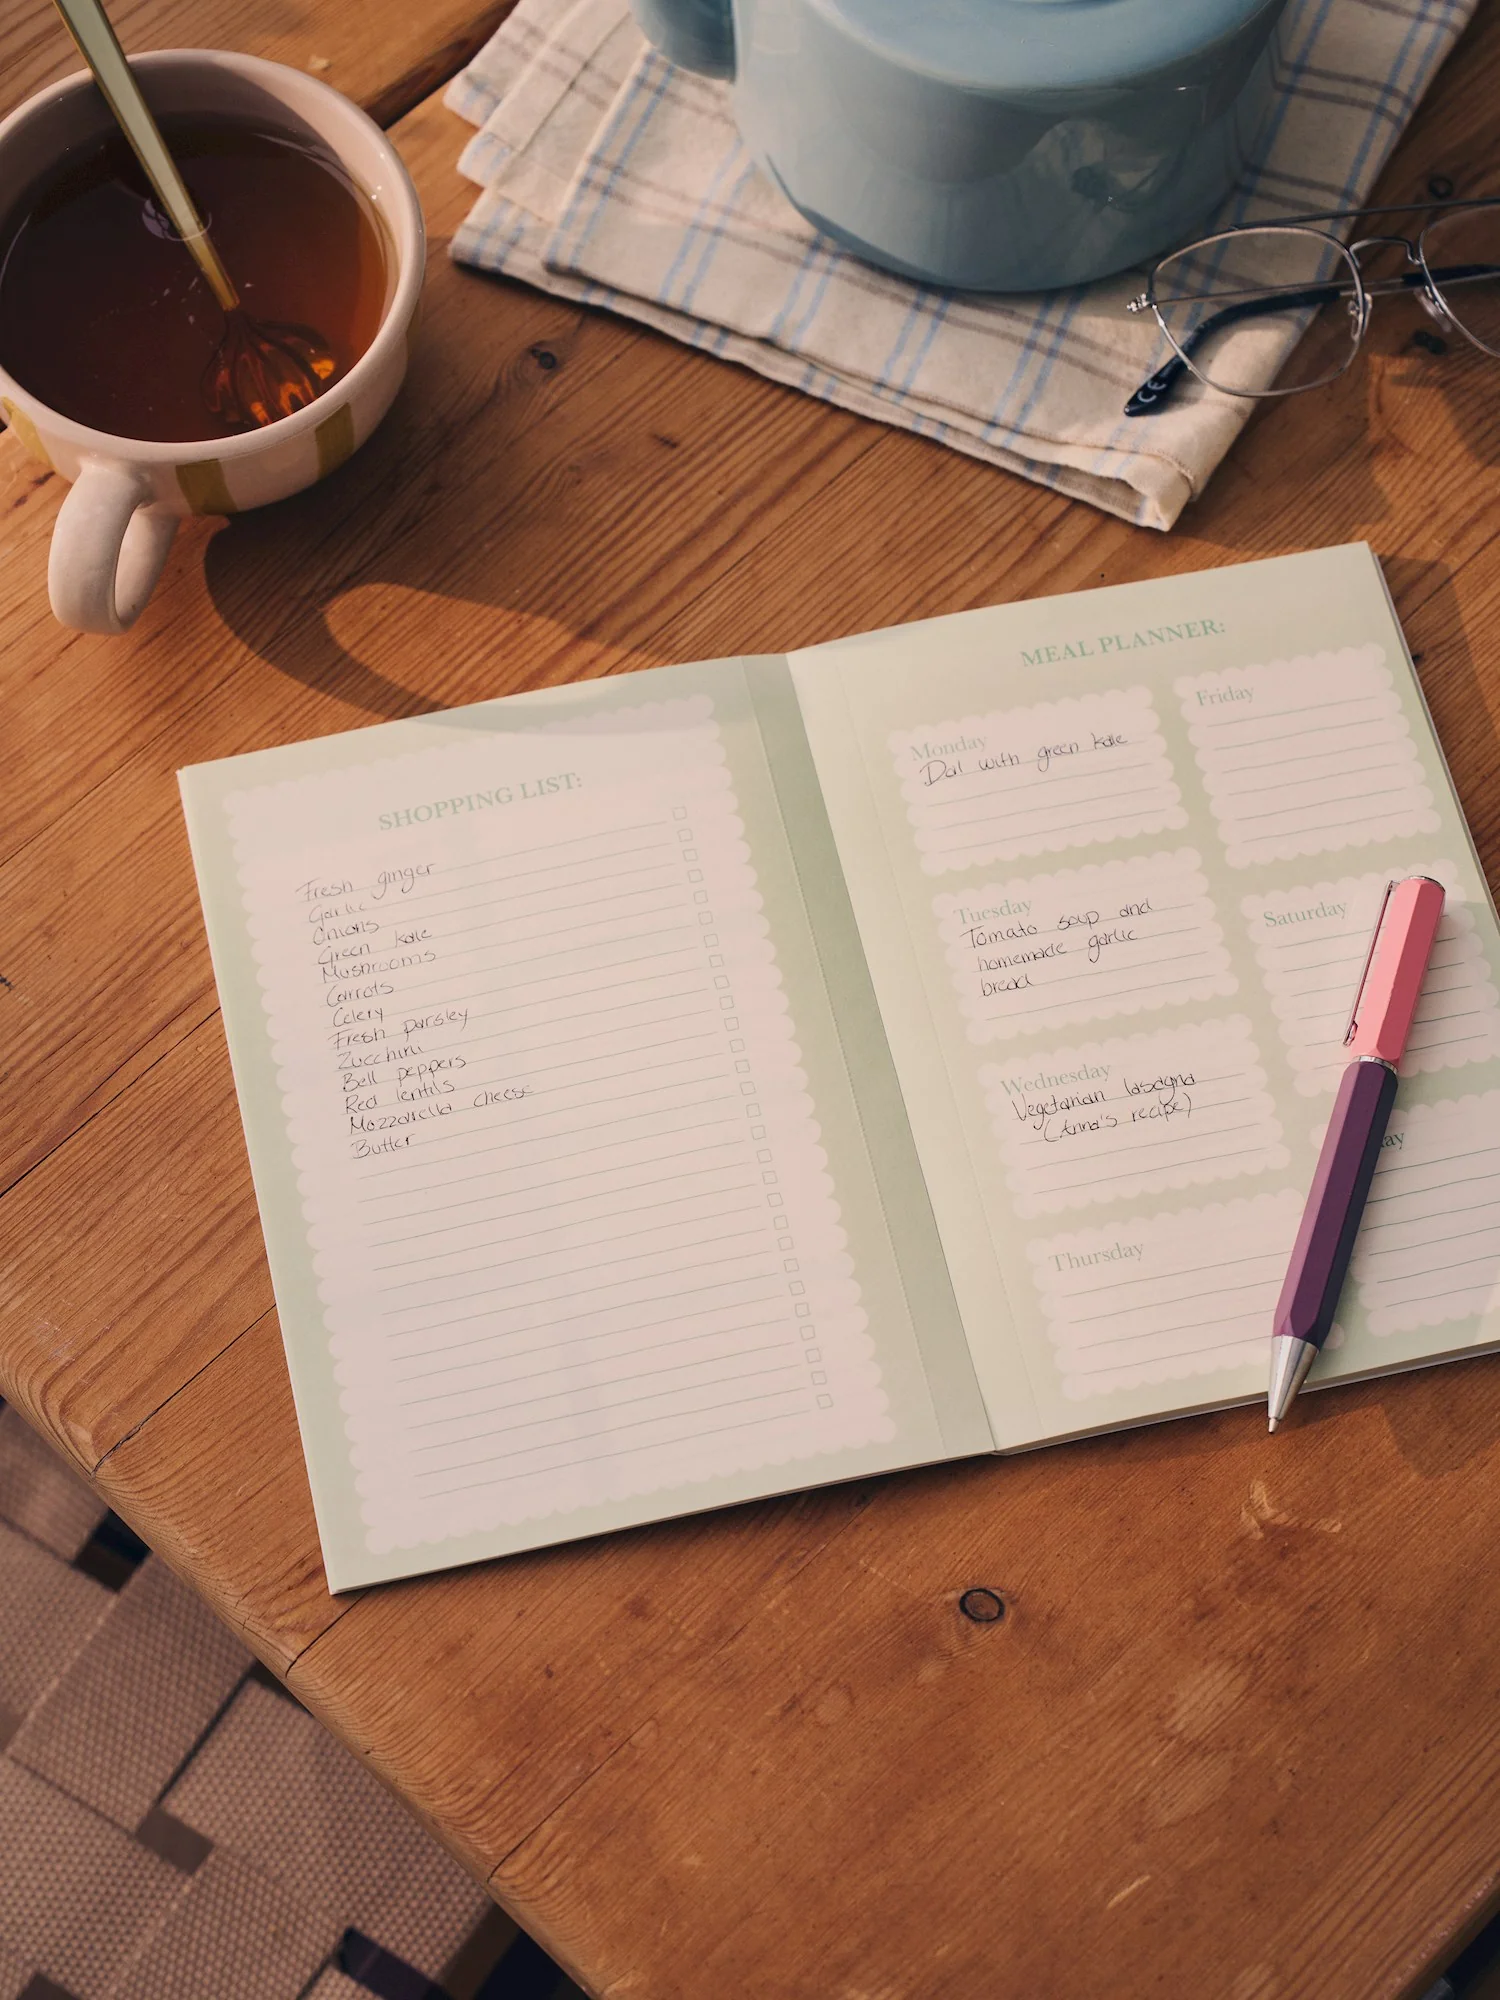 CE
SHOPPING LIST:
Fresh ginger
Garlic
Onions
Green kale
Mushrooms
Carrots
Celery
Fresh parsley
Zucchini
Bell peppers
Red lentils
Mozzarella cheese
Butter
MEAL PLANNER:
Monday
Dal with green kale
Tuesday
Tomato soup and
homemade garlic
bread
Wednesday
Vegetarian lasagna
(Anna's recipe)
Thursday
Friday
Saturday
ay